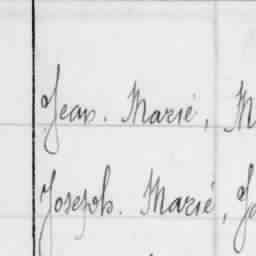 Jean. Marie, M
Joseph. Marie, J